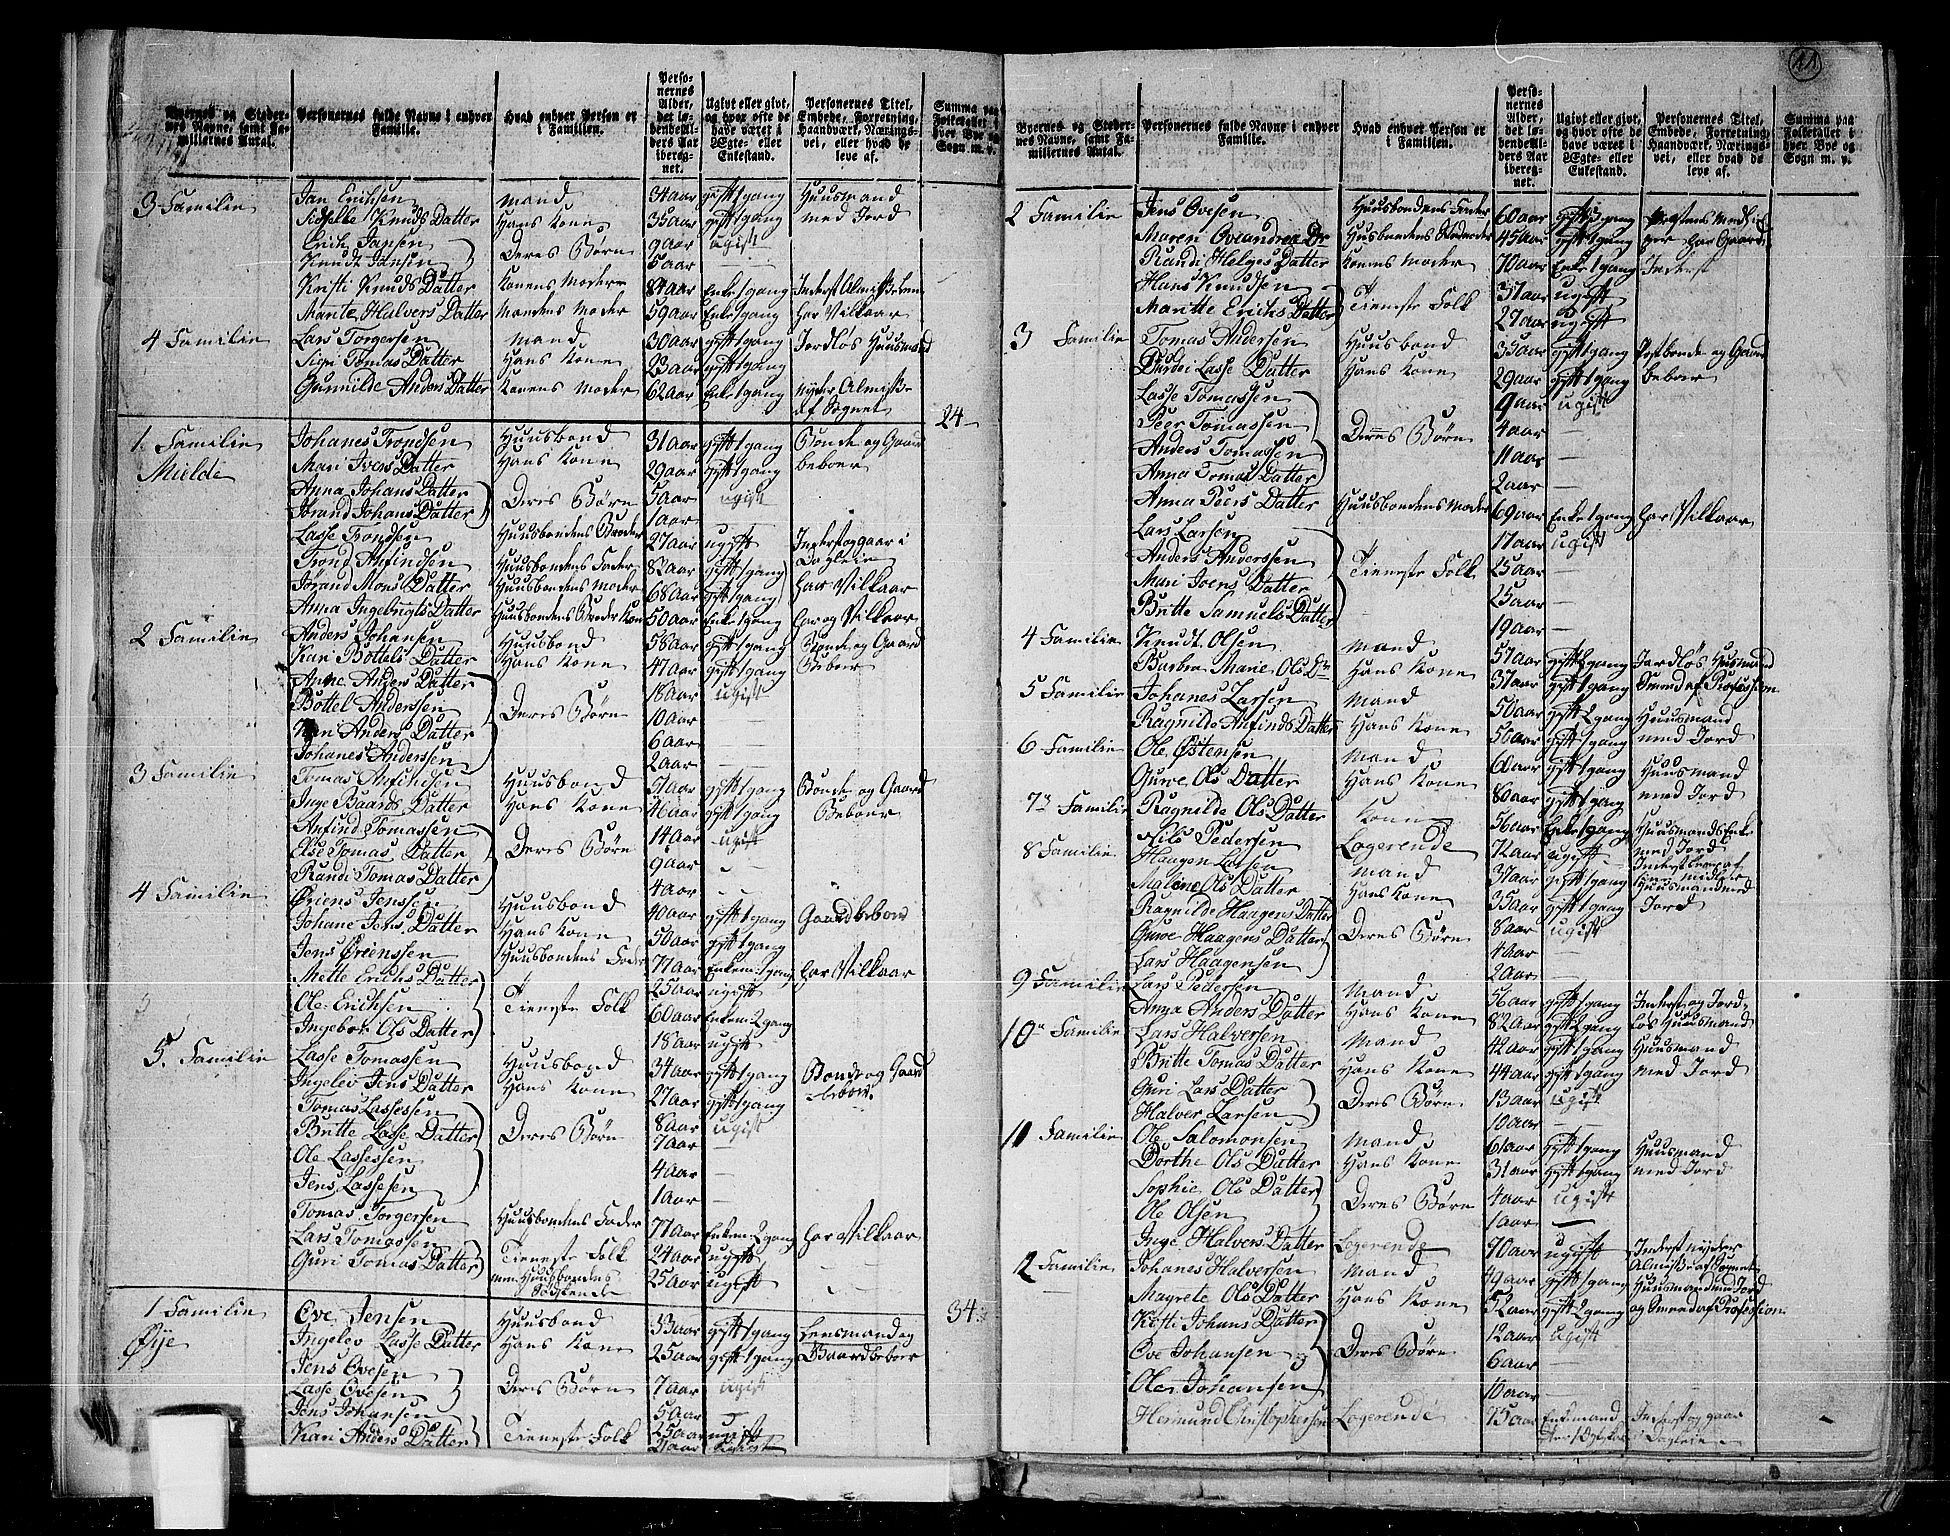 11
Byernes og Steder- | Personernes fulde Navne i enhver | Hvad enhver Person er | Perso- | Ugivt eller givt, | Personernes Titel, | Summa paa
nes Navne, samt Fa- | Familie. | i Familien. | nernes Alder, det lø- | og hvor ofte de | Embede, Forretning, | Folketallet i
milliernes Antal. | bendeAl- ders Aar iberegnet. | have været i Ægte- eller Enkestand. | Haandværk, Næringsvei, eller hvad de leve af. | hver Bye og Sogn m. v.
3 Familie | Jan Erichsen | Mand | 34 aar | gift 1 gang | Huusmand
Sidselle Knuds Datter | Hans Kone | 35 aar | gift 1 gang | med Jord
Erich Jansen | Deres Børn | 9 aar | ugift
Knudt Jansen | 5 aar | —
Kristi Knuds Datter | Konens Moder | 84 aar | Enke 1 gang
Marite Halvers Datter | Mandens Moder | 59 aar | Enke 1 gang | har Vilkaar
4 Familie | Lars Torgersen | Mand | 30 aar | gift 1 gang | Jordløs Huusmand
Sigri Tomas Datter | Hans Kone | 23 aar | gift 1 gang
Gunnilde Anders Datter | Konens Moder | 62 aar | Enke 1 gang | nyder Almisse
af Sognet | 24
1. Familie | Johanes Trondsen | Huusbond | 31 aar | gift 1 gang | Bonde og Gaard
Mielde | Mari Ivers Datter | Hans Kone | 29 aar | gift 1 gang | beboer
Anna Johans Datter | Deres Børn | 5 aar | ugift
Jørand Johans Datter | 1 aar | —
Lasse Trondsen | Huusbondens Broder | 27 aar | ugift | Inderst og gaar i
Trond Anfindsen | Huusbondens Fader | 82 aar | gift 1 gang | Dagleie
Jørand Mons Datter | Huusbondens Moder | 68 aar | gift 1 gang | har Vilkaar
Anna Ingebrigts Datter | 50 aar | Enke 1 gang | har og Vilkaar
2 Familie | Anders Johansen | Huusbond | 58 aar | gift 1 gang | Bonde og Gaard
Kari Bottels Datter | Hans Kone | 47 aar | gift 1 gang | Beboer
Anne Anders Datter | Deres Børn | 18 aar | ugift
Bottel Anderssen | 10 aar | —
Kari Anders Datter | 6 aar | —
Johanes Anderssen | 2 aar | —
3 Familie | Tomas Anfindsen | Huusbond | 51 aar | gift 1 gang | Bonde og Gaard
Inge Baards Datter | Hans Kone | 46 aar | gift 1 gang | Beboer
Anfind Tomassen | Deres Børn | 14 aar | ugift
Else Tomas Datter | 9 aar
Randi Tomas Datter | 4 aar
4 Familie | Øriens Jenssen | Huusbond | 40 aar | gift 1 gang | Gaardbeboer
Johane Jens Datter | Hans Kone | 50 aar | gift 1 gang
Jens Ørienssen | Huusbondens Fader | 71 aar | Enkem 1 gang | har Vilkaar
Mette Erichs Datter | Tieneste Folk | 25 aar | ugift
Ole Erichsen | 60 aar | Enkem 2 gang
Ingebor Ols Datter | 18 aar | ugift
5. Familie | Lasse Tomassen | Huusbond | 34 aar | gift 1 gang | Bonde og Gaard
Ingelev Jens Datter | Hans Kone | 27 aar | gift 1 gang | beboer
Tomas Lassesen | Deres Børn | 8 aar | ugift
Britte Lasse Datter | 7 aar | —
Ole Lassesen | 4 aar | —
Jens Lassesen | 1 aar | —
Tomas Torgersen | Huusbondens Fader | 77 aar | Enkem 2 gang | har Vilkaar
Lars Tomassen | Tieneste Folk | 24 aar | ugift
Guri Tomas Datter | Huusbondens Søskende | 25 aar | ugift
34
1 Familie | Ove Jensen | Huusbond | 33 aar | gift 1 gang | Lensmand og
Øye | Ingelev Lasse Datter | Hans Kone | 25 aar | gift 1 gang | Gaardbeboer
Jens Ovesen | Deres Børn | 7 aar | ugift
Lasse Ovesen | 5 aar | —
Jens Johansen | Tieneste Folk | 25 aar | ugift
Kari Anders Datter | 21 aar | ugift
Byernes og Steder- | Personernes fulde Navne i enhver | Hvad enhver Person er | Perso- | Ugivt eller givt, | Personernes Titel, | Summa paa
nes Navne, samt Fa- | Familie. | i Familien. | nernes Alder, det lø- | og hvor ofte de | Embede, Forretning, | Folketallet i
milliernes Antal. | bendeAl- ders Aar iberegnet. | have været i Ægte- eller Enkestand. | Haandværk, Næringsvei, eller hvad de leve af. | hver Bye og Sogn m. v.
2 Familie | Jens Ovesen | Huusbondens Fader | 60 aar
Maren Oveandrea Dr | 45 aar | gift 1 gang
Randi Helges Datter | Konens Moder | 70 aar | Enke 1 gang | Inderst
Hans Knudsen | Tieneste Folk | 37 aar | ugift
Maritte Erichs Datter | 27 aar | ugift
3 Familie | Tomas Andersen | Huusbond | 35 aar | gift 1 gang | Postbonde og Gaard
Lasse Datter | Hans Kone | 29 aar | gift 1 gang | beboer
Lasse Tomassen | Deres Børn | 9 aar | ugift
Peer Tomassen | 4 aar | —
Anders Tomassen | 11 aar | —
Anna Tomas Datter | 2 aar | —
Anna Peers Datter | Huusbondens Moder | 69 aar | Enke 1 gang | har Vilkaar
Lars Larsen | Tieneste Folk | 17 aar | ugift
Anders Anderssen | 25 aar | —
Mari Ivens Datter | 25 aar | —
Britte Samuels Datter | 19 aar | —
4 Familie | Knudt Olsen | Mand | 57 aar | gift 2 gang | Jordløs Husmand
Barbra Marie Ols Dr | Hans Kone | 37 aar | gift 1 gang | Smed af Profession
5 Familie | Johanes Larsen | Mand | 50 aar | gift 2 gang | Huusmand
Ragnilde Anfinds Datter | Hans Kone | 50 aar | gift 1 gang | med Jord
6 Familie | Ole Østensen | Mand | 60 aar | gift 1 gang | Huusmand
Guwe Ols Datter | Hans Kone | 80 aar | gift 1 gang | med Jord
7 Familie | Ragnilde Ols Datter | Kone | 56 aar | Enke 1 gang | Huusmands Enke
Nils Pedersen | Logerende | 72 aar | ugift | med Jord
8 Familie | Haagen Larsen | Mand | 37 aar | gift 1 gang | Huusmand med
Malene Ols Datter | Hans Kone | 35 aar | gift 1 gang | Jord
Ragnilde Haagens Datter | Deres Børn | 8 aar | ugift
Guwe Haagens Datter | 4 aar | —
Lars Haagensen | 2 aar | —
9 Familie | Lars Pedersen | Mand | 56 aar | gift 1 gang | Inderst og Jord-
Anna Anders Datter | Hans Kone | 82 aar | gift 2 gang | løs Huusmand
10 Familie | Lars Halversen | Mand | 42 aar | gift 1 gang | Huusmand
Britte Tomas Datter | Hans Kone | 44 aar | gift 1 gang | med Jord
Guri Lars Datter | Deres Børn | 13 aar | ugift
Halver Larsen | 10 aar | —
11 Familie | Ole Salomonsen | Mand | 61 aar | gift 1 gang | Huusmand
Dorthe Ols Datter | Hans Kone | 31 aar | gift 1 gang | med Jord
Sophie Ols Datter | Deres Børn | 4 aar | ugift
Ole Olsen | 1 aar | —
Inge Halvers Datter | Logerende | 70 aar | ugift | Inderst nyder
Familie | Johanes Halversen | Mand | 49 aar | gift 1 gang | Almisse af Sognet
Magrete Ols Datter | Hans Kone | 52 aar | gift 2 gang | Huusmand med Jord
Kisti Johans Datter | Deres Børn | 12 aar | ugift | og Smed af Profession
Ove Johansen | 6 aar | —
Ole Johansen | 10 aar | —
Hermund Christophersen | Logerende | 75 aar | Enkemand | Inderst og gaar
Dagleie